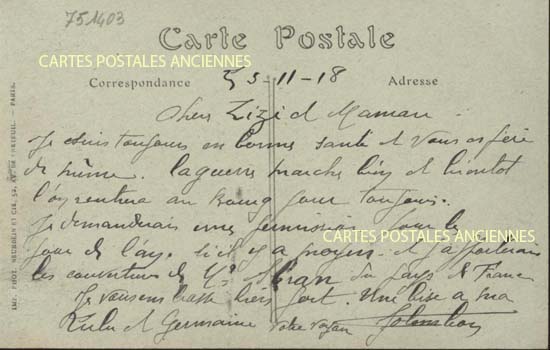 751403
Carte Postale
CARTES POSTALES ANCIENNES
Correspondance
5-11-18
Adresse
Chers Zizi et Maman
Je suis toujours en bonne santé et vous espère
de même. la guerre marche bien et bientot
l'on rentrera au bourg pour toujours.
Je demanderais une permission pour le
jour de l'an s'il y a moyen et j'apporterais
CARTES POSTALES ANCIENNES
les couvertures de du pays de France
Je vous embrasse bien fort. Une bise a ma
Lulu et Germaine votre
IMP. PHOT. NEURDEIN ET CIE, 52, AV. DE BRETEUIL. — PARIS.